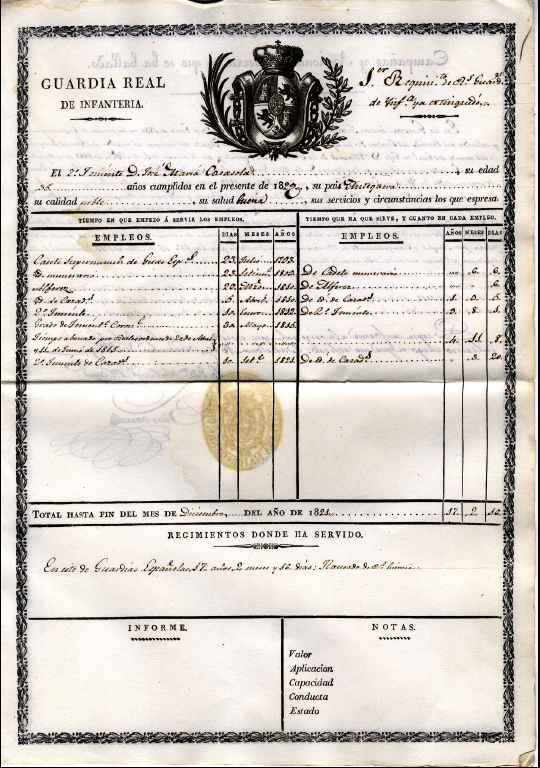 GUARDIA REAL
DE INFANTERIA.
1.er Regim.to de R.s Guard.s
de Inf.a ya extinguido.
El 2.o Teniente D. José Maria Casasola , su edad
años cumplidos en el presente de 182 , su pais Antequera
su calidad noble , su salud buena , sus servicios y circunstancias los que espresa.
TIEMPO EN QUE EMPEZÓ Á SERVIR LOS EMPLEOS.
EMPLEOS. DIAS MESES AÑOS
Cadete Supernumer.o de Guas Esp.s 23. Julio
Id. numerario 23. Setiem.e
Alferez 1810.
Id. de Cazad.s 5. Abril. 1810.
2.o Teniente 10. Enero. 1812.
Grado de Tenient.e Coron.l 30. Mayo. 1815.
Tiempo abonado por Reales ordenes de 20 de Abril
y 11 de Junio de 1815
2.o Teniente de Cazad.s 10. Set.e 1821.
TIEMPO QUE HA QUE SIRVE, Y CUANTO EN CADA EMPLEO.
EMPLEOS. AÑOS MESES DIAS
De Cadete numerario 6.
De Alferez 6.
De Id. de Cazad.s 1. 5.
De 2.o Teniente 8.
4. 11. 8.
De Id. de Cazad.s 3. 20.
TOTAL HASTA FIN DEL MES DE Diciembre DEL AÑO DE 1821 17. 2 12.
REGIMIENTOS DONDE HA SERVIDO.
En este de Guardias Españolas, 17. años, 2 meses y 12 dias:
INFORME.
NOTAS.
Valor
Aplicacion
Capacidad
Conducta
Estado